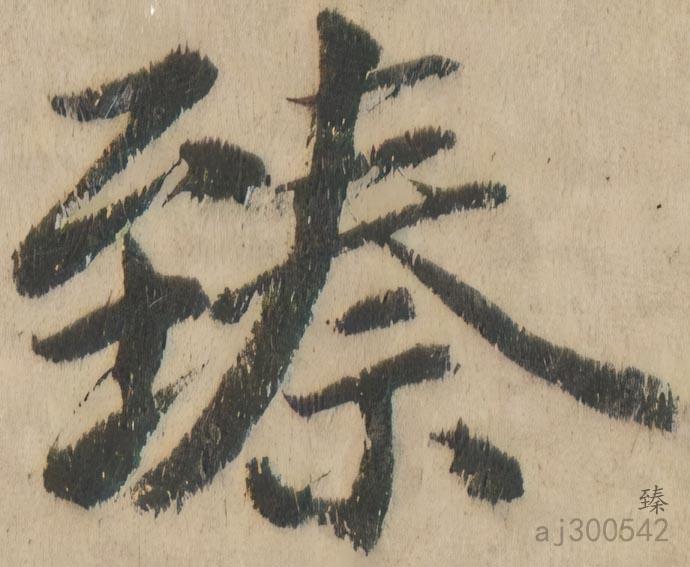 臻
臻
aj300542